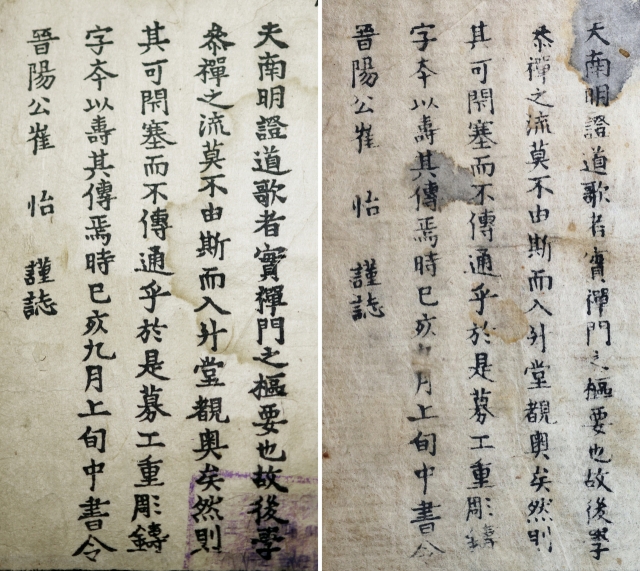 夫南明證道歌者實禪門之樞要也故後學
叅禪之流莫不由斯而入升堂覩奧矣然則
其可閇塞而不傳通乎於是募工重彫鑄
字夲以壽其傳焉時巳亥九月上旬中書令
晉陽公崔 怡 謹誌
夫南明證道歌者實禪門之樞要也故後學
叅禪之流莫不由斯而入升堂覩奧矣然則
其可閇塞而不傳通乎於是募工重彫鑄
字夲以壽其傳焉時巳亥九月上旬中書令
晉陽公崔 怡 謹誌